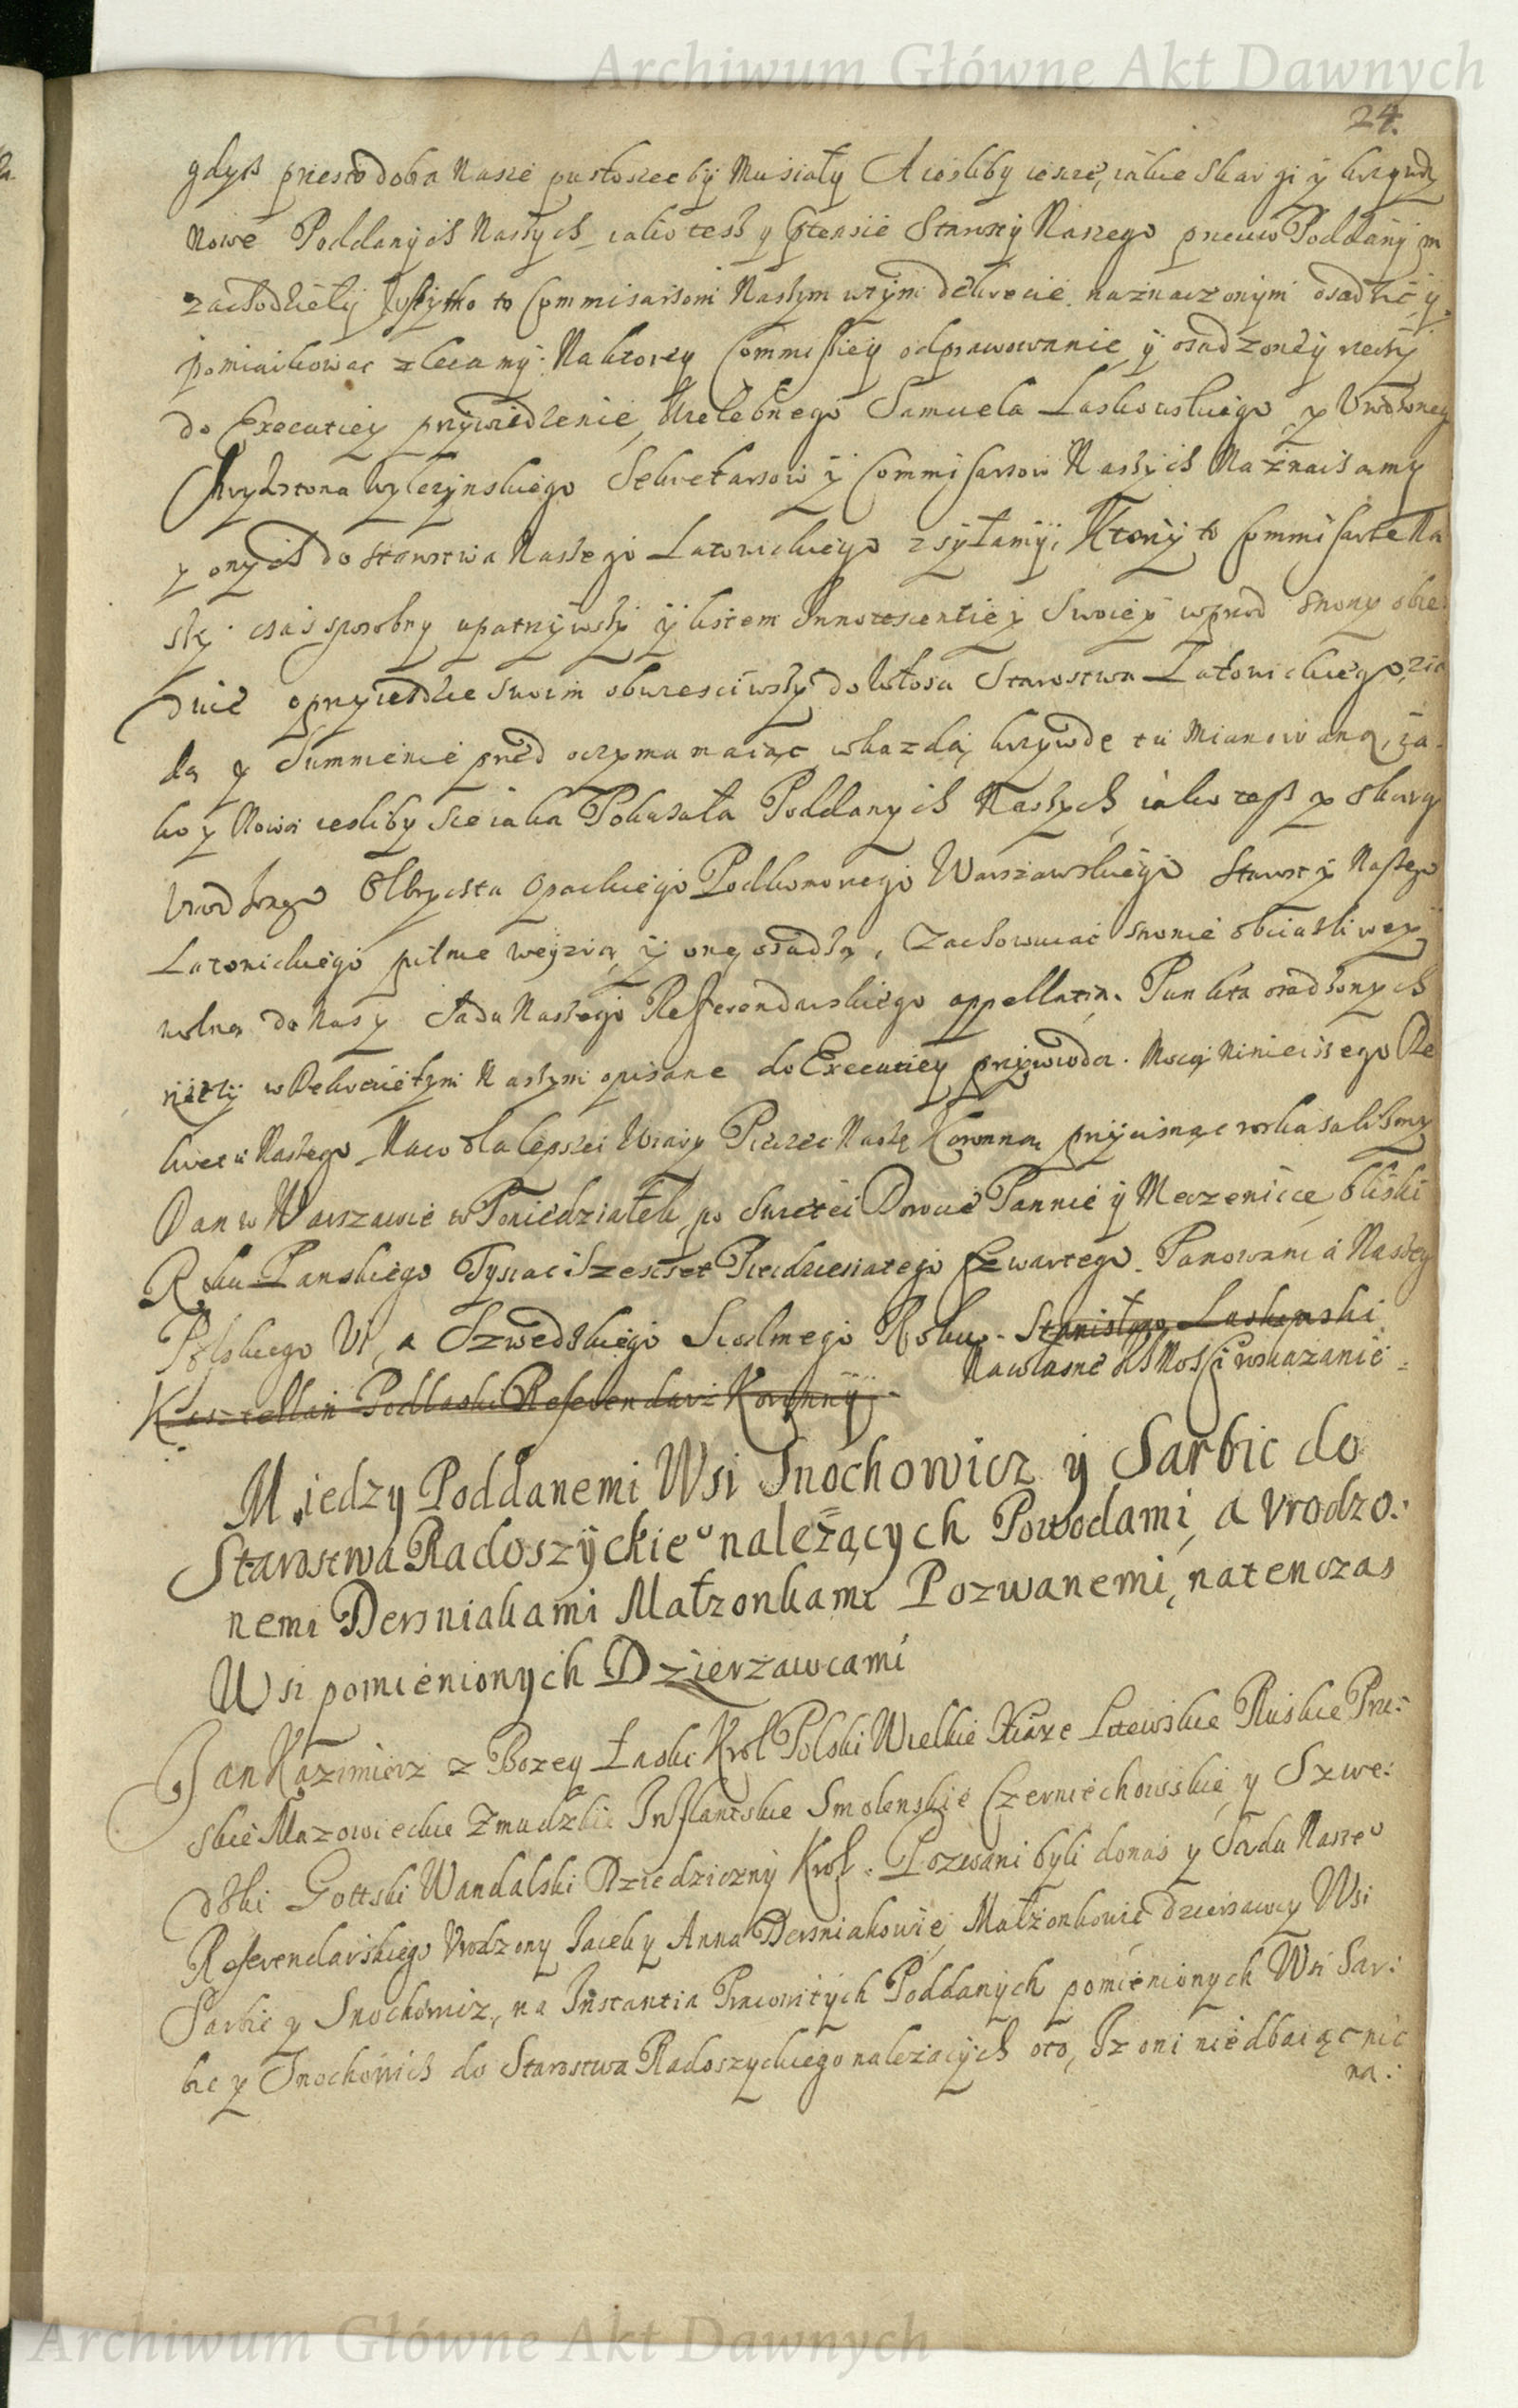 Archiwum Główne Akt Dawnych
24.
gdysz przesto dobra Nasze pustoszec by Musiały A iesliby iescze, iakie Skargi y krzywdy
Nowe Poddanych Naszych iako tesz y Ptensie Starosty Naszego przeciw Poddanym
zachodziely Wszytko to Commisarzom Naszym wtym dekrecie naznaczonym osadzic y
pomiarkowac zlecamy: Na ktorey Commissiey odprawowanie y osadzoney rzeczy
do Executiey przywiedzenie, Wielebnego Samuela Laskowskiego y Vrodzoneg
Sekretarzow y Commisarzow Naszych Naznaczamy
y onych do starostwa Naszego Latowickiego zsyłamy; Ktorzy to Commisarze Na
szy czas sposobny upatrzywszy y listem Innotescentiey Swoiey wprzod strony obie
dwie oprzyiezdzie Swoim obwiesciwszy do Włosci Starostwa Latowickiego, zia
da y Summienie przed oczyma maiąc wkazdą krzywde tu Mianowaną, ia
ko y Nową iesliby sie iaka Pokazała Poddanych Naszych iako tesz y skargi
Vrodzonego Olbrychta Opackiego Podkomorzego Warszawskiego Starosty Naszego
Latowickiego pilnie weyzrzą y onę osadzą, Zachowuiąc stronie obciązliwey
wolną do Nas y Sadu Naszego Referendarskiego appellatią. Punkta osadzonych
rzeczy w Dekrecie tym Naszym opisane do Executiey przywioda. Mocą Ninieiszego De
kretu Naszego Na co dla lepszei Wiary Pieczec Naszę Koronną przycisnąc roskazalismy
Dan w Warszawie w Poniedziałek po Swiętei Dorocie Pannie y Męczenicce bliski
Roku Panskiego Tysiąc Szescset Piecdziesiatego Czwartego. Panowania Naszey
Polskiego VI, a Szwedzkiego Siodmego Roku. Stanisław Laskowski
Nawłasne JKMosci roskazanie =
Kasztellan Podlaski Referendarz Koronny
Miedzy Poddanemi Wsi Snochowicz y Sarbic do
Starostwa Radoszyckieo należących Powodami, a vrodzo:
nemi Dersniakami Małzonkami Pozwanemi, natenczas
Wsi pomienionych Dzierzawcami
Jan Kazimierz z Bozey Łaski Krol Polski Wielkie Xiąże Litewskie Ruskie Pru:
skie Mazowieckie Zmudzkie Inflantskie Smolenskie Czerniechowskie y Szwe:
dzki Gottski Wandalski Dziedziczny Krol. Pozwani byli donas y Sądu Naszeo
Referendarskiego Vrodzony Jacek y Anna Dersniakowie Małżonkowie Dzierzawcy Wsi
Sarbic y Snochowicz, na Instantia Pracowitych Poddanych pomienionych Wsi Sar:
bic y Snochowich do Starostwa Radoszyckiego nalezących oto, Iz oni niedbaiąc nic
na:
Archiwum Główne Akt Dawnych